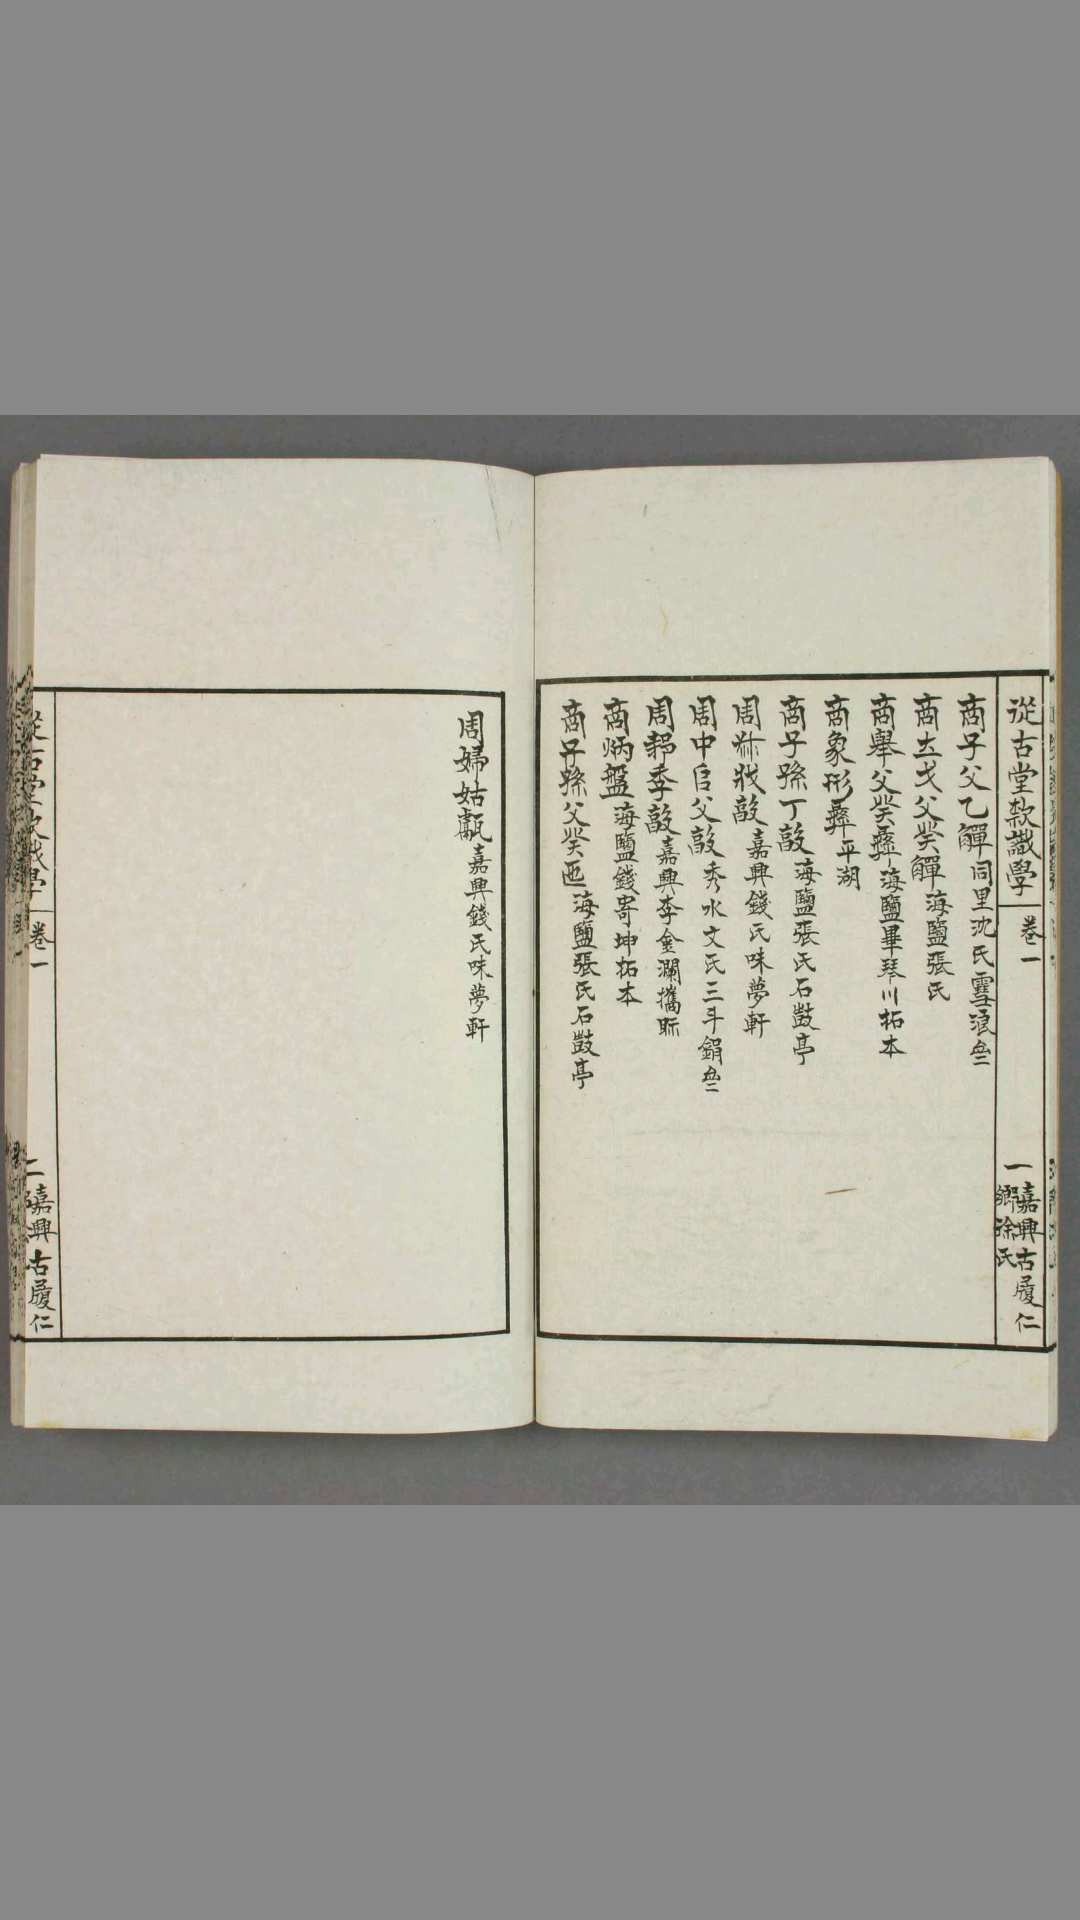 從古堂款識學 卷一 一 嘉興古履仁鄉徐氏
商子父乙觶 同里沈氏雪浪
商立戈父癸觶 海鹽張氏
商舉父癸彝 海鹽畢琴川拓本
商象形彝 平湖
商子孫丁敦 海鹽張氏石鼓亭
周 敦 嘉興錢氏味夢軒
周中 父敦 秀水文氏三斗鋗
周 季敦 嘉興李金瀾攜眎
商炳盤 海鹽錢寄坤拓本
商子孫父癸匜 海鹽張氏石鼓亭
周婦姑甗 嘉興錢氏味夢軒
從古堂款識學 卷一 二 嘉興古履仁